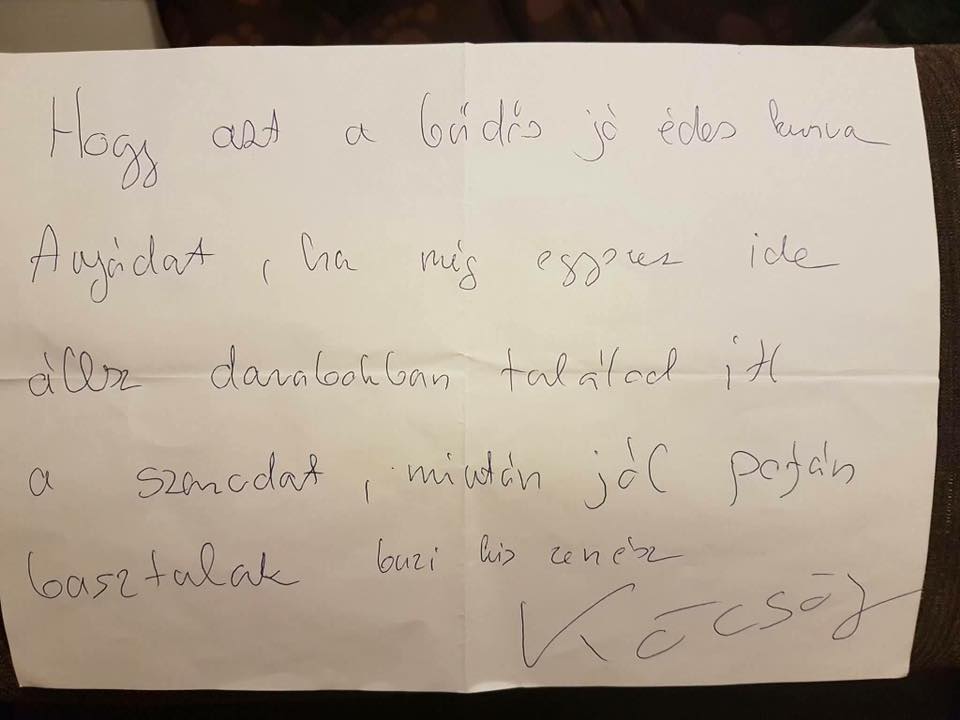 Hogy azt a büdös jó édes kurva
Anyádat, ha még egyszer ide
állsz darabokban találod itt
a szarodat, miután jól pofán
basztalak buzi kis zenész
Köcsög